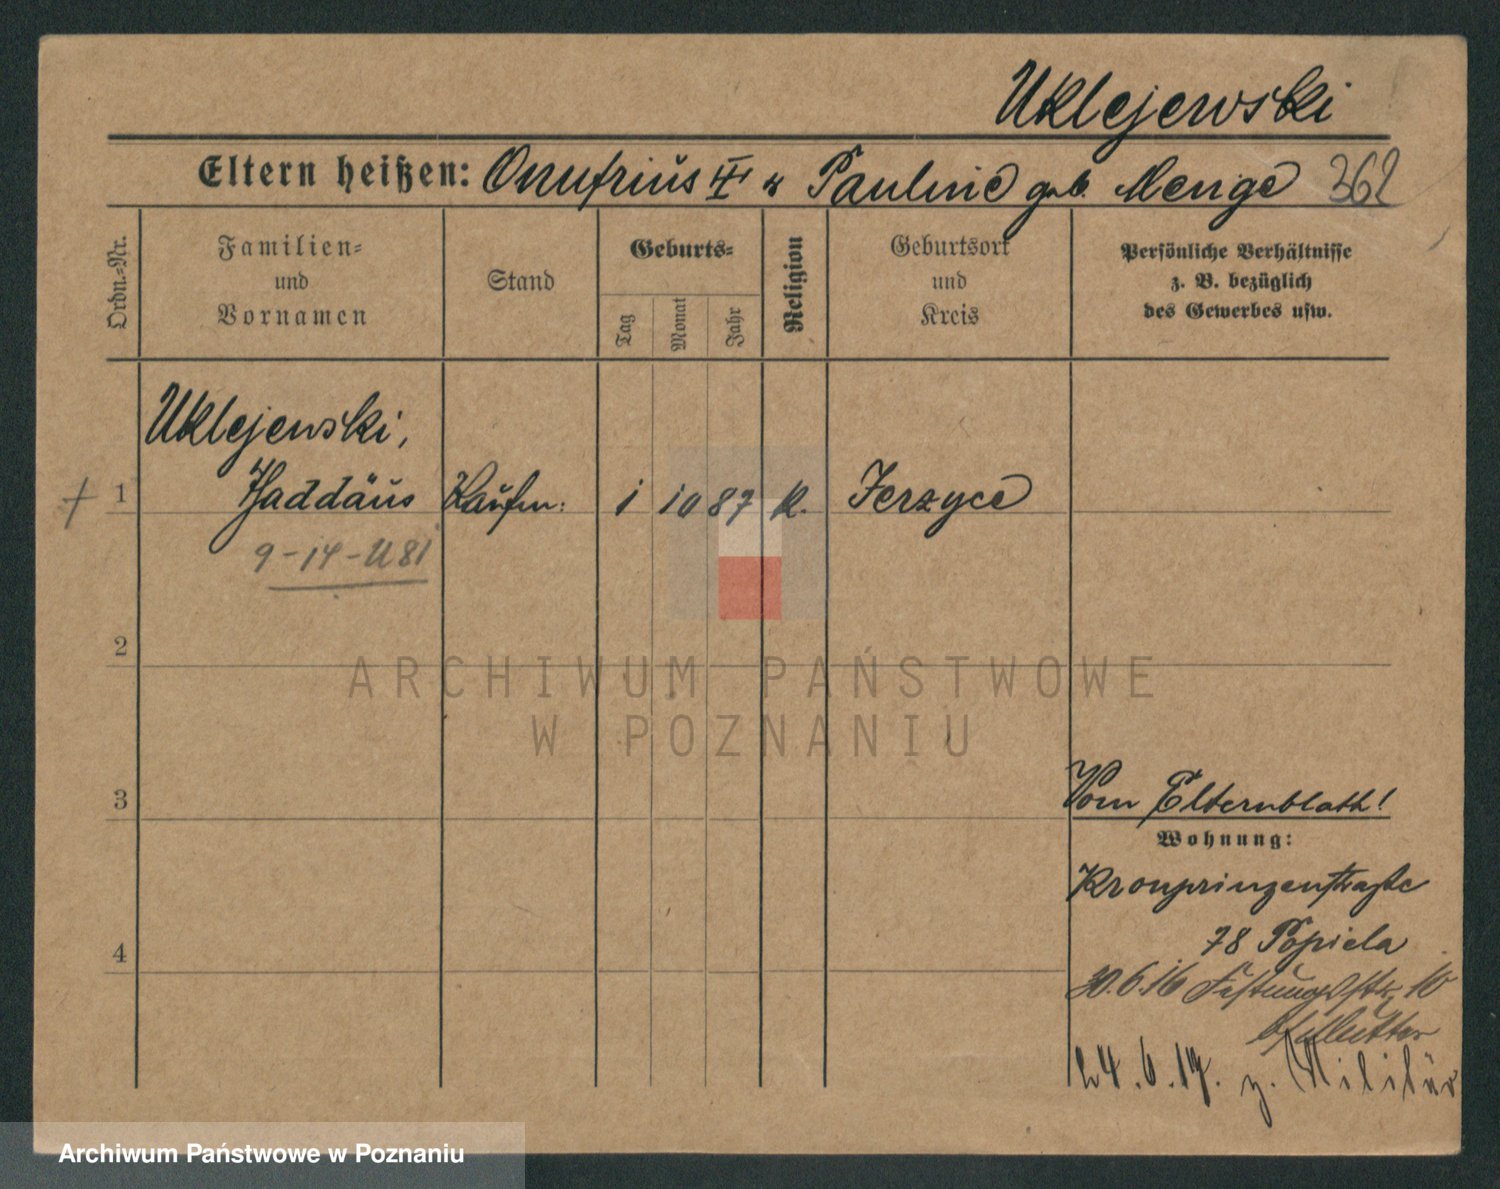 Uklejewski
Eltern heißen: Onufrius III u Pauline geb. Menge 362
Ordn.-Nr.
Familien-
und
Vornamen
Stand
Geburts-
Tag
Monat
Jahr
Religion
Geburtsort
und
Kreis
Persönliche Verhältnisse
z. B. bezüglich
des Gewerbes usw.
Uklejewski,
+ 1 Thaddäus Kaufm: 1 10 87 K. Jerzyce
9-14-U81
2
ARCHIWUM PAŃSTWOWE
W POZNANIU
3
Vom Elternblatt!
Wohnung:
Kronprinzenstraße
78 Popiela
4
30.6.16 Festungsstr. 10
b/ Mutter
24.6.17. z. Militär
Archiwum Państwowe w Poznaniu